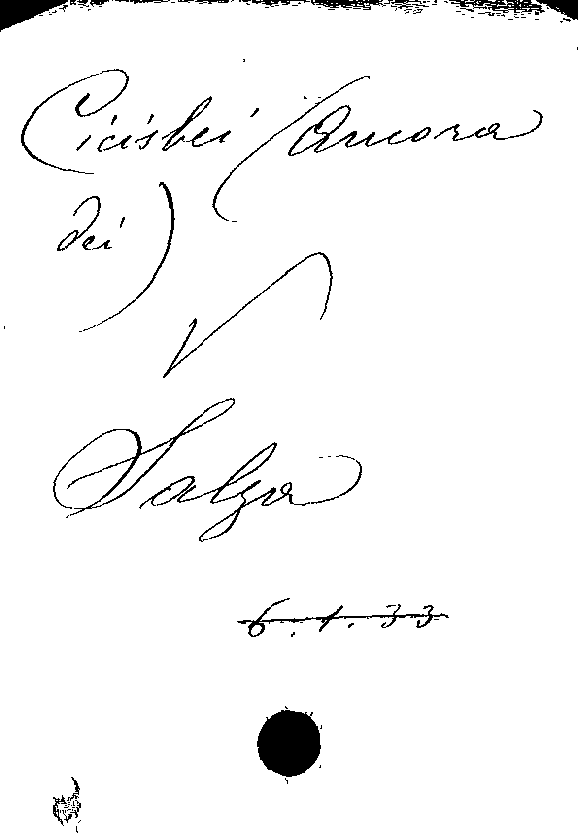 Cicisbei (Ancora
dei)
V
Salza
6.1.33